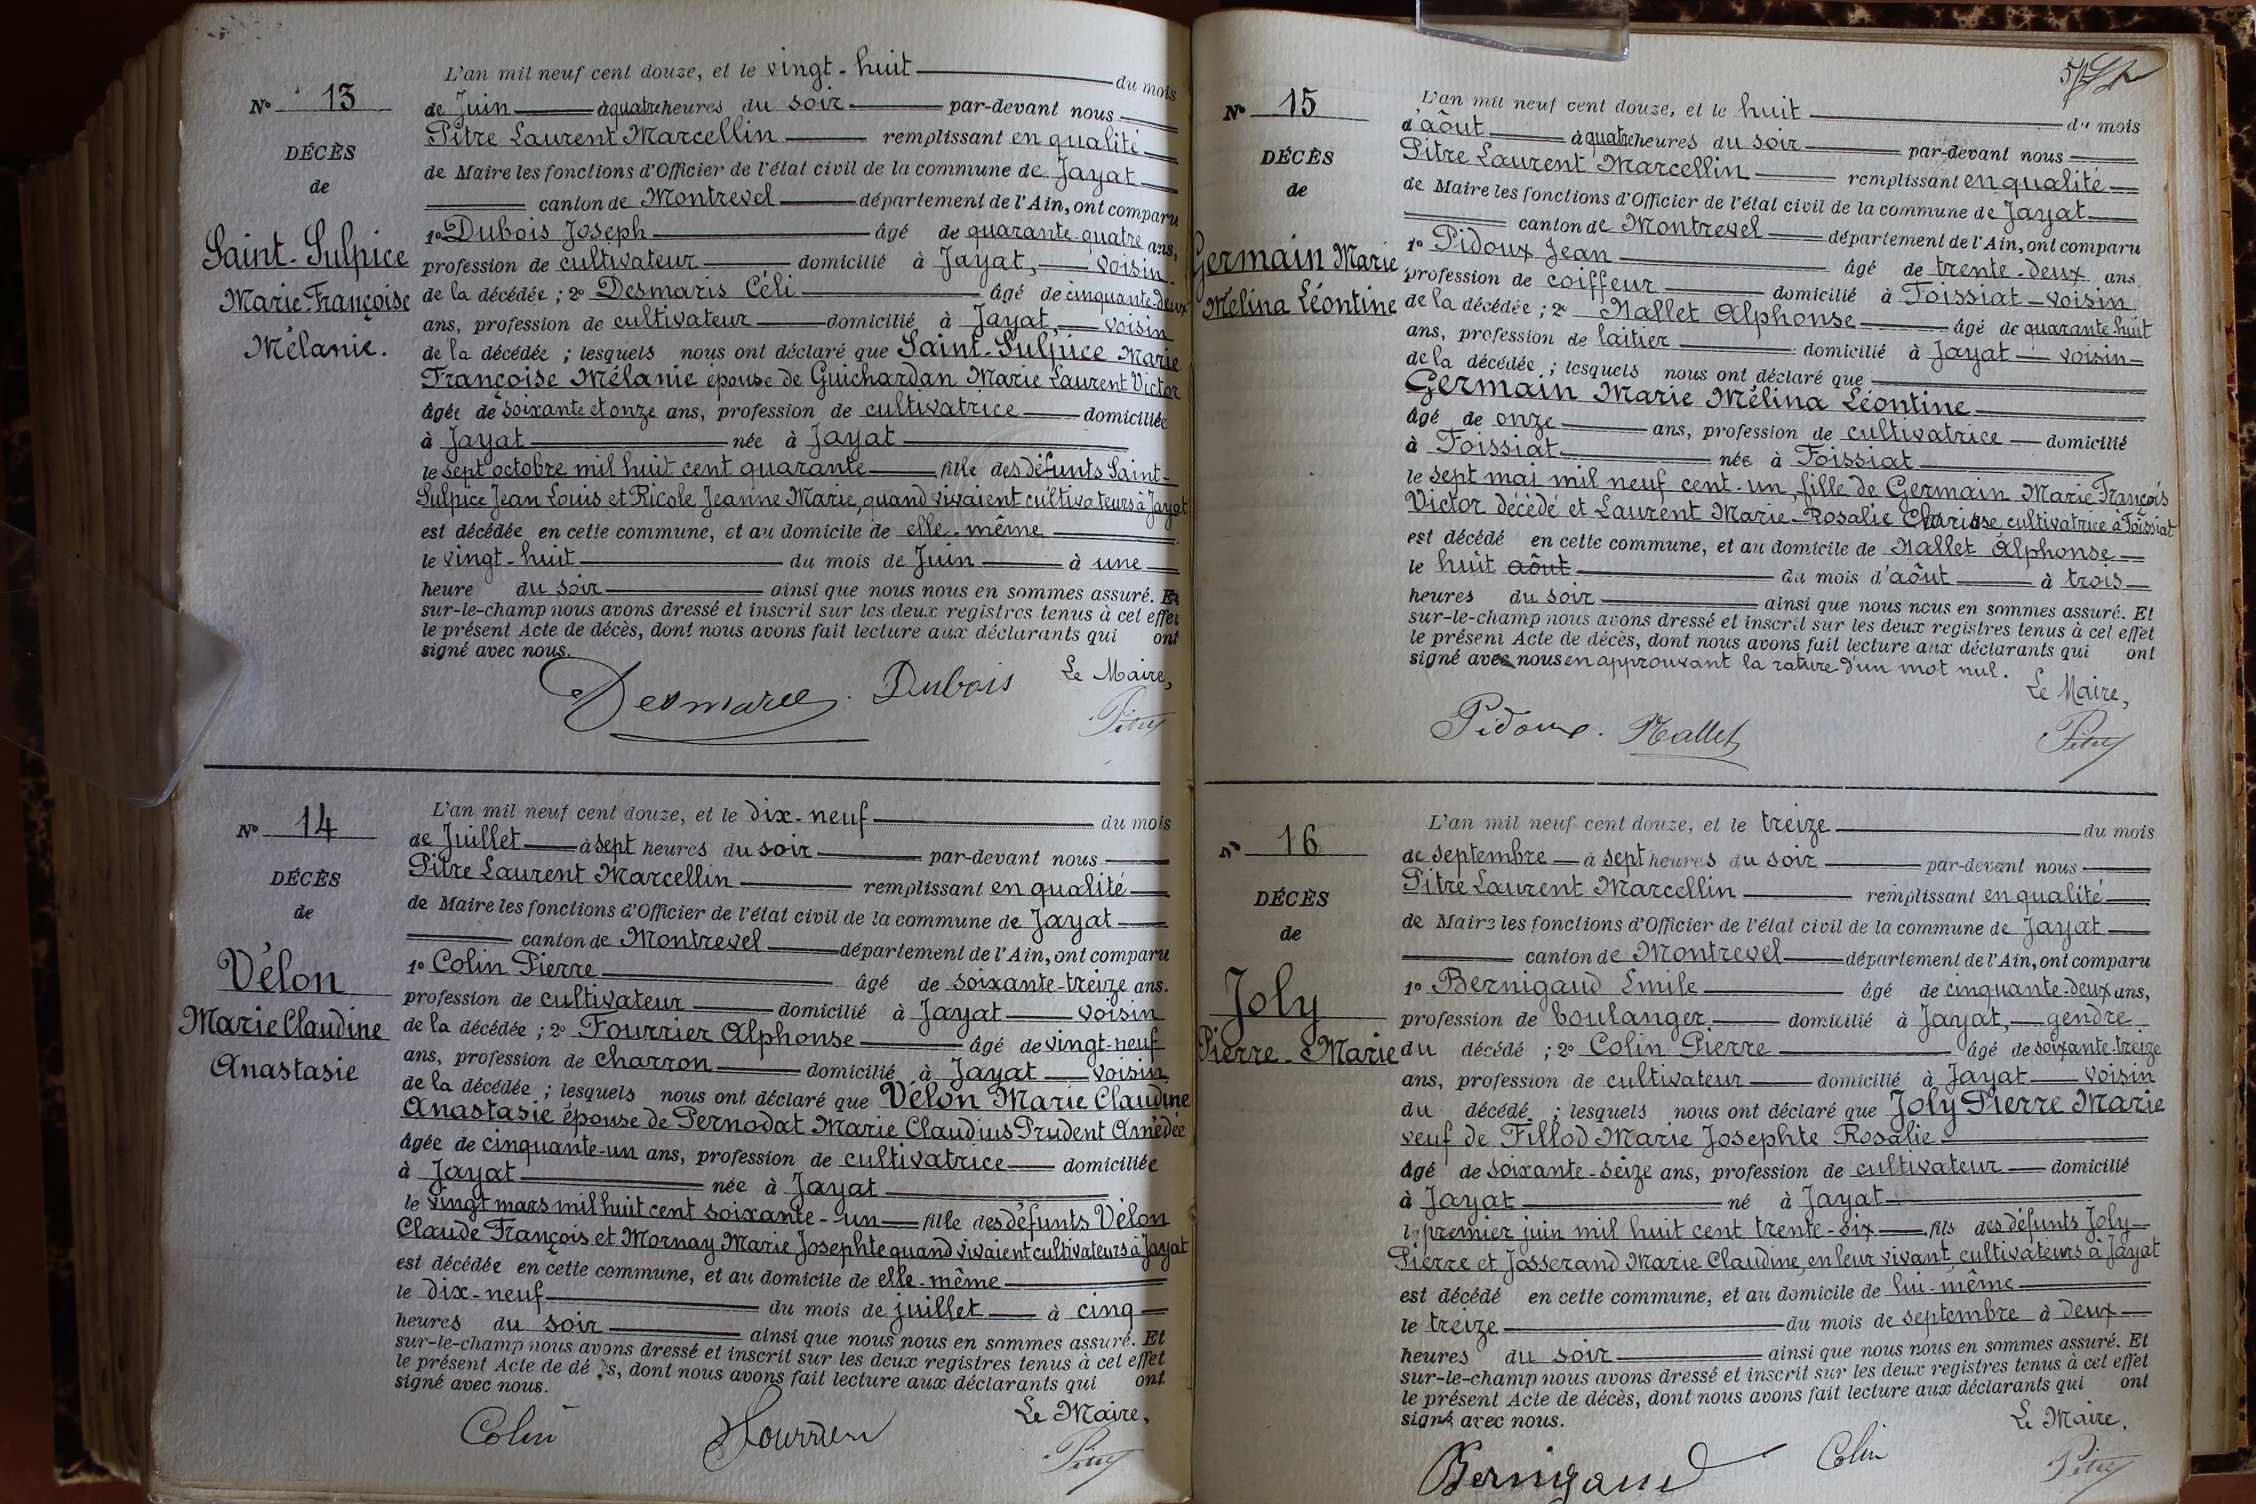 N° 13
DÉCÈS
de
Saint-Sulpice
Marie-Françoise
Mélanie.
L'an mil neuf cent douze, et le vingt-huit du mois
de Juin à quatre heures du soir par-devant nous
Pitre Laurent Marcellin remplissant en qualité
de Maire les fonctions d'Officier de l'état civil de la commune de Jayat
canton de Montrevel département de l'Ain, ont comparu
1° Dubois Joseph âgé de quarante-quatre ans,
profession de cultivateur domicilié à Jayat, voisin
de la décédée ; 2° Desmaris Céli âgé de cinquante-deux
ans, profession de cultivateur domicilié à Jayat, voisin
de la décédée ; lesquels nous ont déclaré que Saint-Sulpice Marie
Françoise Mélanie épouse de Guichardan Marie Laurent Victor
âgée de soixante et onze ans, profession de cultivatrice domiciliée
à Jayat née à Jayat
le sept octobre mil huit cent quarante fille des défunts Saint-
Sulpice Jean Louis et Ricole Jeanne Marie, quand vivaient cultivateurs à Jayat
est décédée en cette commune, et au domicile de elle-même
le vingt-huit du mois de Juin à une
heure du soir ainsi que nous nous en sommes assuré. Et
sur-le-champ nous avons dressé et inscrit sur les deux registres tenus à cet effet
le présent Acte de décès, dont nous avons fait lecture aux déclarants qui ont
signé avec nous.
Le Maire,
Desmaris. Dubois
Pitre
N° 14
DÉCÈS
de
Vélon
Marie Claudine
Anastasie
L'an mil neuf cent douze, et le dix-neuf du mois
de Juillet à sept heures du soir par-devant nous
Pitre Laurent Marcellin remplissant en qualité
de Maire les fonctions d'Officier de l'état civil de la commune de Jayat
canton de Montrevel département de l'Ain, ont comparu
1° Colin Pierre âgé de soixante-treize ans.
profession de cultivateur domicilié à Jayat voisin
de la décédée ; 2° Fourrier Alphonse âgé de vingt-neuf
ans, profession de charron domicilié à Jayat voisin
de la décédée ; lesquels nous ont déclaré que Vélon Marie Claudine
Anastasie épouse de Pernodat Marie Claudius Prudent Amédée
âgée de cinquante-un ans, profession de cultivatrice domiciliée
à Jayat née à Jayat
le vingt mars mil huit cent soixante-un fille des défunts Vélon
Claude François et Mornay Marie Josephte quand vivaient cultivateurs à Jayat
est décédée en cette commune, et au domicile de elle-même
le dix-neuf du mois de juillet à cinq
heures du soir ainsi que nous nous en sommes assuré. Et
sur-le-champ nous avons dressé et inscrit sur les deux registres tenus à cet effet
le présent Acte de décès, dont nous avons fait lecture aux déclarants qui ont
signé avec nous.
Le Maire,
Colin Fourrier
Pitre
N° 15
DÉCÈS
de
Germain Marie
Mélina Léontine
L'an mil neuf cent douze, et le huit du mois
d'août à quatre heures du soir par-devant nous
Pitre Laurent Marcellin remplissant en qualité
de Maire les fonctions d'Officier de l'état civil de la commune de Jayat
canton de Montrevel département de l'Ain, ont comparu
1° Pidoux Jean âgé de trente-deux ans
profession de coiffeur domicilié à Foissiat voisin
de la décédée ; 2° Nallet Alphonse âgé de quarante-huit
ans, profession de laitier domicilié à Jayat voisin
de la décédée ; lesquels nous ont déclaré que
Germain Marie Mélina Léontine
âgé de onze ans, profession de cultivatrice domicilié
à Foissiat née à Foissiat
le sept mai mil neuf cent-un fille de Germain Marie François
Victor décédé et Laurent Marie-Rosalie Clarisse cultivatrice à Foissiat
est décédé en cette commune, et au domicile de Nallet Alphonse
le huit août du mois d'août à trois
heures du soir ainsi que nous nous en sommes assuré. Et
sur-le-champ nous avons dressé et inscrit sur les deux registres tenus à cet effet
le présent Acte de décès, dont nous avons fait lecture aux déclarants qui ont
signé avec nous en approuvant la rature d'un mot nul.
Le Maire,
Pidoux. Nallet
Pitre
N° 16
DÉCÈS
de
Joly
Pierre-Marie
L'an mil neuf cent douze, et le treize du mois
de septembre à sept heures du soir par-devant nous
Pitre Laurent Marcellin remplissant en qualité
de Maire les fonctions d'Officier de l'état civil de la commune de Jayat
canton de Montrevel département de l'Ain, ont comparu
1° Bernigaud Emile âgé de cinquante-deux ans,
profession de boulanger domicilié à Jayat, gendre
du décédé ; 2° Colin Pierre âgé de soixante-treize
ans, profession de cultivateur domicilié à Jayat voisin
du décédé ; lesquels nous ont déclaré que Joly Pierre Marie
veuf de Fillod Marie Josephte Rosalie
âgé de soixante-seize ans, profession de cultivateur domicilié
à Jayat né à Jayat
le premier juin mil huit cent trente-six fils des défunts Joly
Pierre et Josserand Marie Claudine, en leur vivant cultivateurs à Jayat
est décédé en cette commune, et au domicile de lui-même
le treize du mois de septembre à deux
heures du soir ainsi que nous nous en sommes assuré. Et
sur-le-champ nous avons dressé et inscrit sur les deux registres tenus à cet effet
le présent Acte de décès, dont nous avons fait lecture aux déclarants qui ont
signé avec nous.
Le Maire,
Bernigaud Colin
Pitre